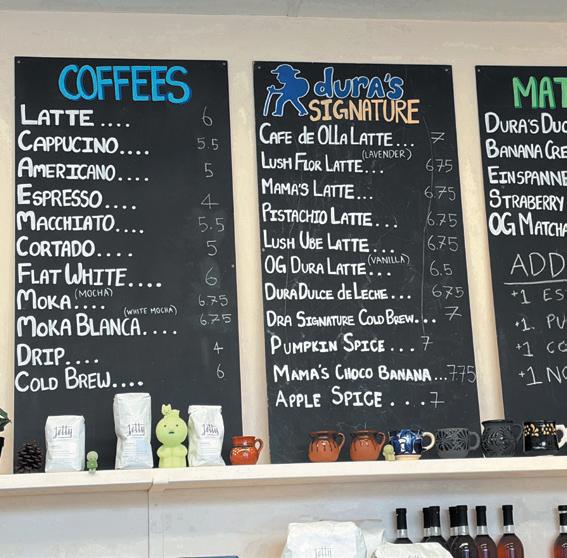 COFFEES
LATTE .... 6
CAPPUCINO.... 5.5
AMERICANO.... 5
ESPRESSO.... 4
MACCHIATO.... 5.5
CORTADO.... 5
FLAT WHITE.... 6
MOKA (MOCHA).... 6.75
MOKA BLANCA (WHITE MOCHA).... 6.75
DRIP.... 4
COLD BREW.... 6
dura's
SIGNATURE
CAFE de OLLA LATTE... 7
LUSH FLOR LATTE (LAVENDER)... 6.75
MAMA'S LATTE... 6.75
PISTACHIO LATTE... 6.75
LUSH UBE LATTE... 6.75
OG DURA LATTE (VANILLA)... 6.5
DURA DULCE de LECHE... 6.75
DRA SIGNATURE COLD BREW... 7
PUMPKIN SPICE... 7
MAMA'S CHOCO BANANA...7.75
APPLE SPICE...7
MAT
DURA'S DU
BANANA CRE
EINSPANNE
STRABERRY
OG MATCHA
ADD
+1 ES
+1. PU
+1 CO
+1 NO
Jetty
Jetty
Jetty